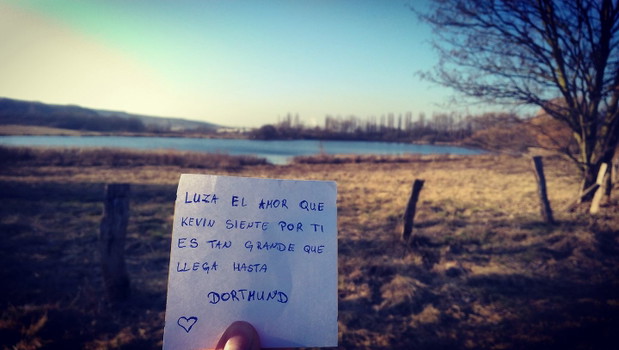 LUZA EL AMOR QUE
KEVIN SIENTE POR TI
ES TAN GRANDE QUE
LLEGA HASTA
DORTMUND